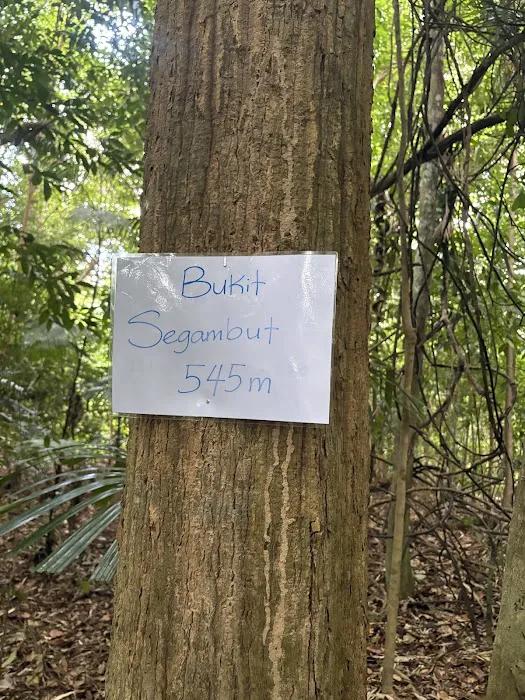 Bukit
Segambut
545m